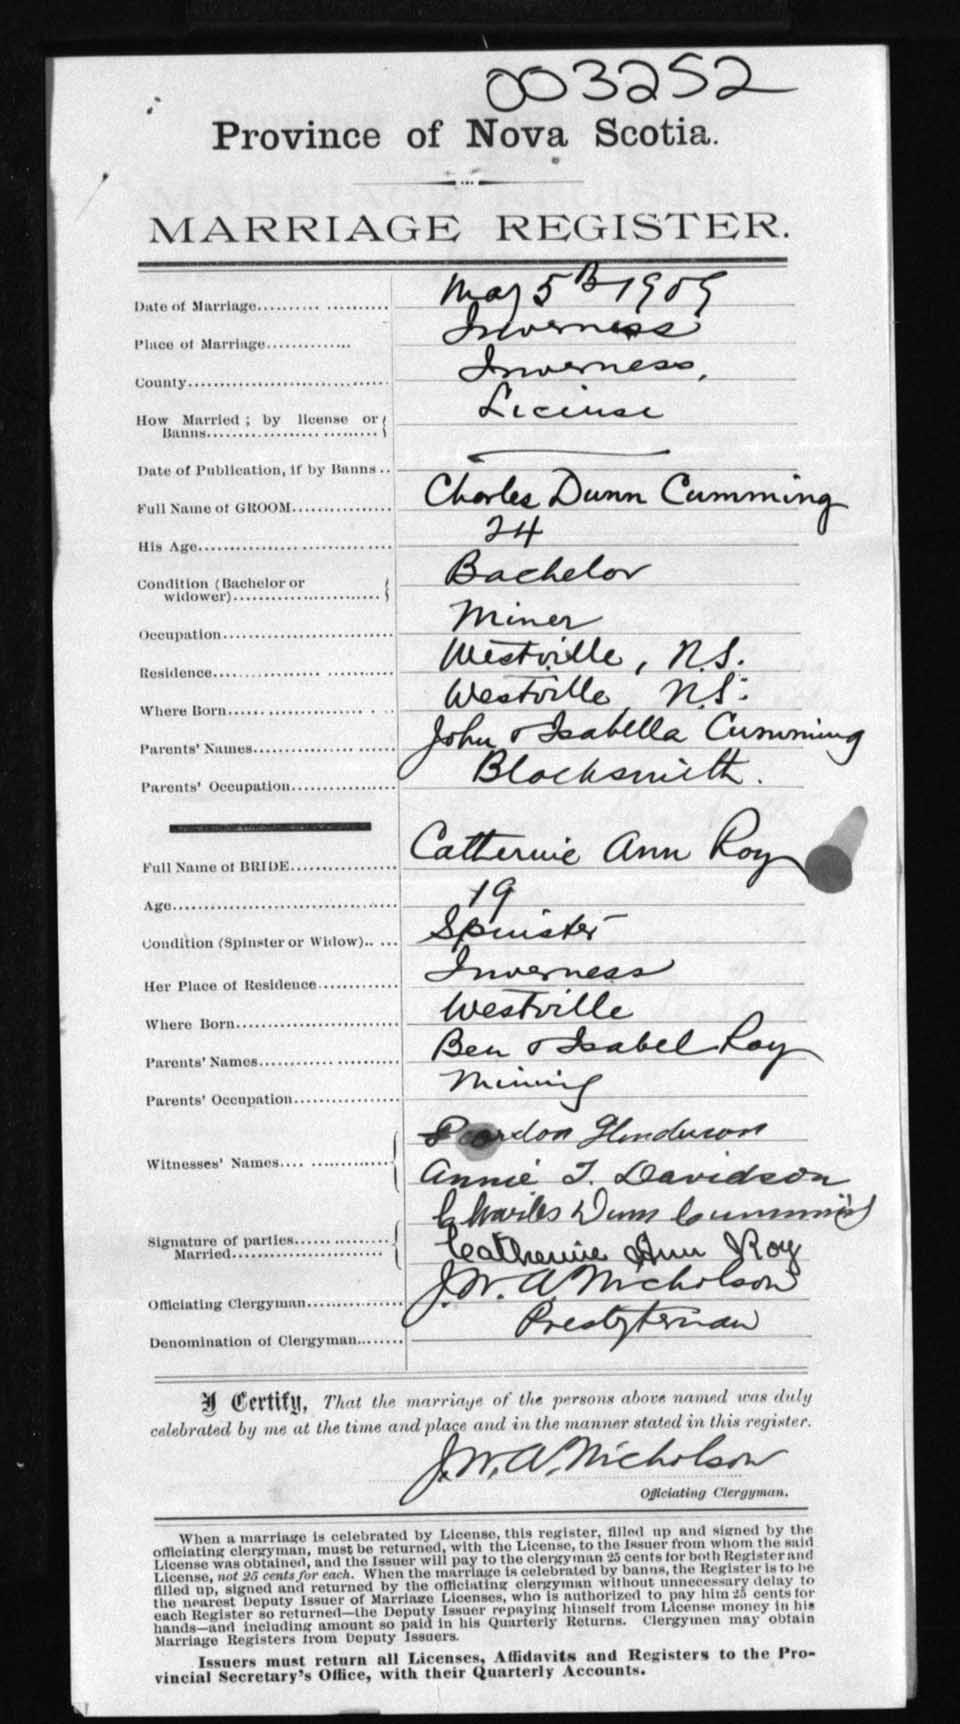 003252
Province of Nova Scotia.
MARRIAGE REGISTER.
Date of Marriage.......... May 5th 1909
Place of Marriage............. Inverness
County.............................. Inverness,
How Married; by license or License
Banns..........................
Date of Publication, if by Banns ..
Full Name of GROOM............... Charles Dunn Cumming
His Age............................. 24
Condition (Bachelor or Bachelor
widower).........................
Occupation.......................... Miner
Residence........................... Westville, N.S.
Where Born......................... Westville, N.S.
Parents' Names..................... John & Isabella Cumming
Parents' Occupation................ Blacksmith.
Full Name of BRIDE................ Catherine Ann Roy
Age.................................. 19
Condition (Spinster or Widow)..... Spinster
Her Place of Residence............ Inverness
Where Born......................... Westville
Parents' Names..................... Ben & Isabel Roy
Parents' Occupation................ Mining
Witnesses' Names.... Henderson
Annie T. Davidson
Charles Dunn Cumming
Signature of parties............... Catherine Ann Roy
Married........................
Officiating Clergyman.............. J. W. A. Nicholson
Denomination of Clergyman....... Presbyterian
I Certify, That the marriage of the persons above named was duly
celebrated by me at the time and place and in the manner stated in this register.
J. W. A. Nicholson
Officiating Clergyman.
When a marriage is celebrated by License, this register, filled up and signed by the
officiating clergyman, must be returned, with the License, to the Issuer from whom the said
License was obtained, and the Issuer will pay to the clergyman 25 cents for both Register and
License, not 25 cents for each. When the marriage is celebrated by banns, the Register is to be
filled up, signed and returned by the officiating clergyman without unnecessary delay to
the nearest Deputy Issuer of Marriage Licenses, who is authorized to pay him 25 cents for
each Register so returned—the Deputy Issuer repaying himself from License money in his
hands—and including amount so paid in his Quarterly Returns. Clergymen may obtain
Marriage Registers from Deputy Issuers.
Issuers must return all Licenses, Affidavits and Registers to the Pro-
vincial Secretary's Office, with their Quarterly Accounts.